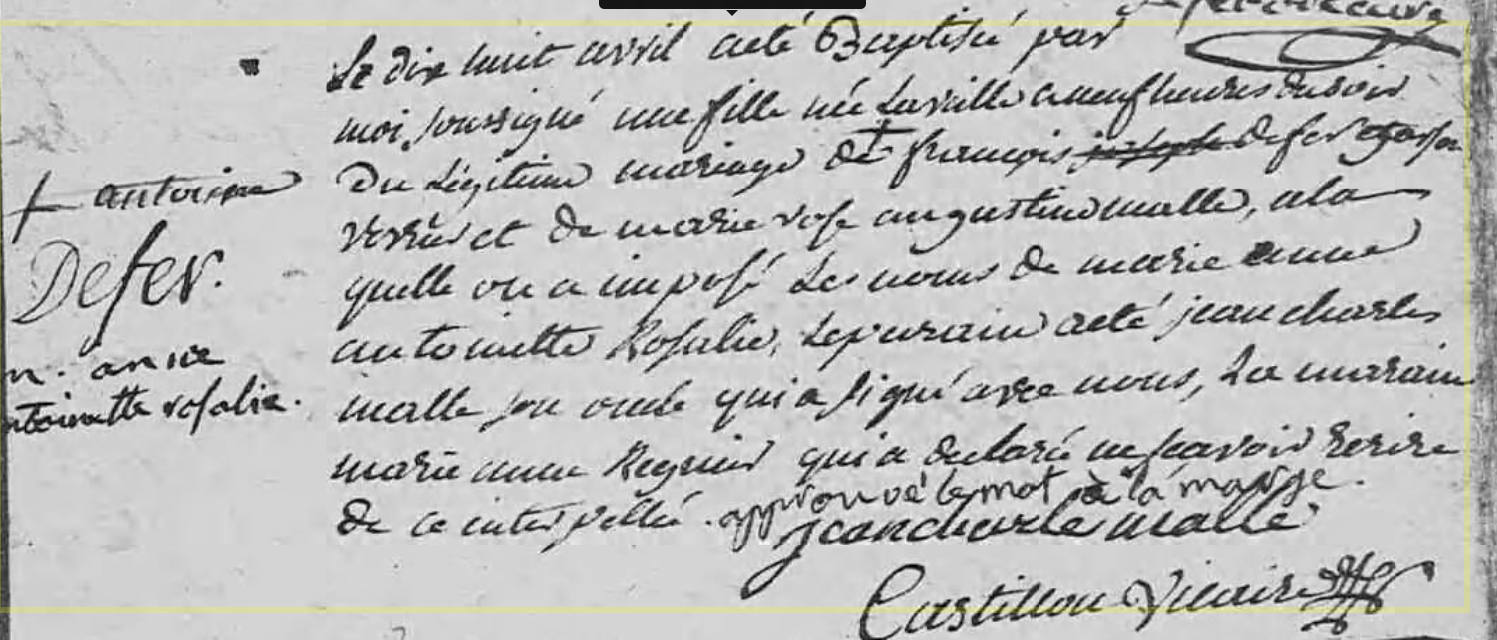 Le dix huit avril a eté Baptisé par
moi soussigné une fille née la veille a neuf heures du soir
+ antoine
du légitime mariage de + françois joseph defer
verrier et de marie rose augustine malle, a la
Defer.
quelle on a imposé les noms de marie anne
antoinette Rosalie, le parain a eté jean charles
m. anne
antoinette rosalie.
malle son oncle qui a signé avec nous, la maraine
marie anne Regnier qui a declaré ne scavoir ecrire
de ce interpellée. approuvé le mot à la marge.
jean charle malle
Castillon Vicaire